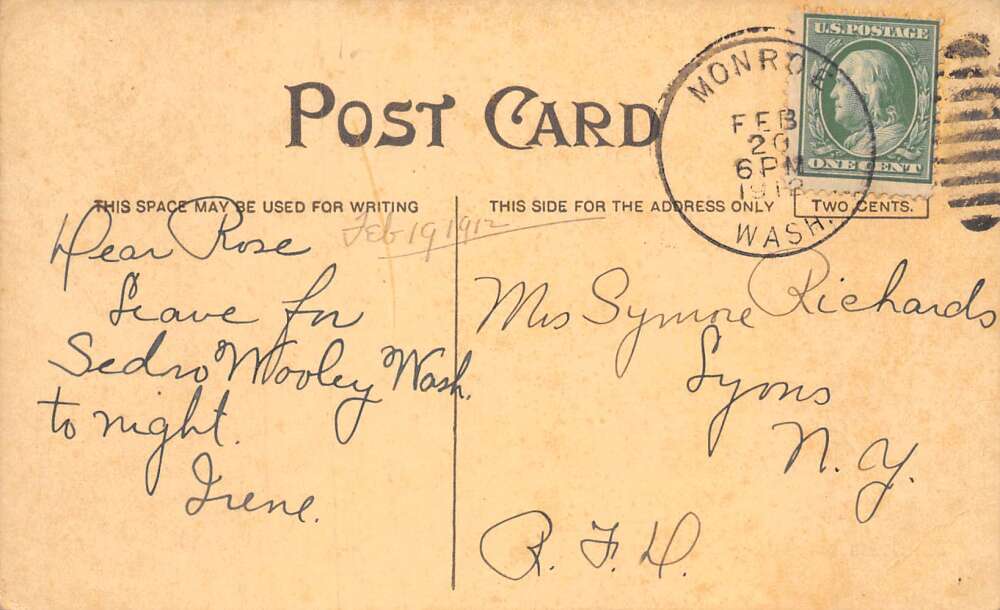 POST CARD
THIS SPACE MAY BE USED FOR WRITING
THIS SIDE FOR THE ADDRESS ONLY
TWO CENTS.
U.S. POSTAGE
ONE CENT
MONROE
FEB
20
6 PM
1912
WASH.
Feb 19 1912
Dear Rose
Leave for
Sedro Wooley Wash.
to night.
Irene.
Mrs Symore Richards
Lyons
N. Y.
R. F. D.